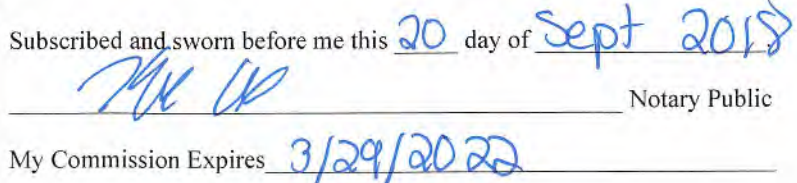 Subscribed and sworn before me this 20 day of Sept 2018
Notary Public
My Commission Expires 3/29/2022